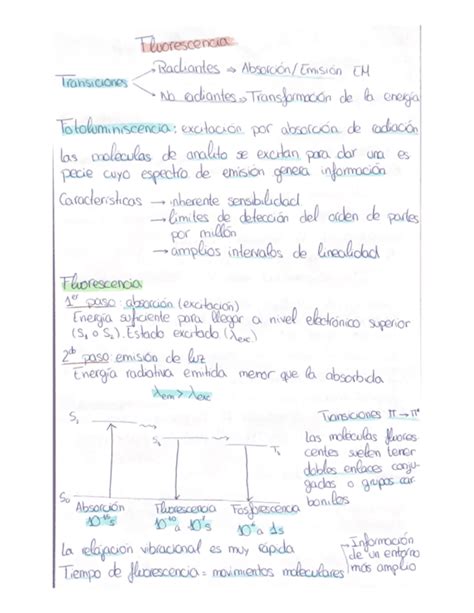 Fluorescencia
Transiciones → Radiantes ⇒ Absorción/Emisión EM
→ No radiantes ⇒ Transformación de la energía
Fotoluminiscencia: excitación por absorción de radiación
Las moléculas de analito se excitan para dar una es
pecie cuyo espectro de emisión genera información
Características → inherente sensibilidad
→ límites de detección del orden de partes
por millón
→ amplios intervalos de linealidad
Fluorescencia
1er paso: absorción (excitación)
Energía suficiente para llegar a nivel electrónico superior
(S1 o S2). Estado excitado (λexc)
2do paso: emisión de luz
Energía radiativa emitida menor que la absorbida
λem > λexc
Transiciones π → π*
Las moléculas fluores
centes suelen tener
dobles enlaces conju-
gados o grupos car-
bonilos
S2
S1
T1
S0
Absorción Fluorescencia Fosforescencia
La relajación vibracional es muy rápida
Tiempo de fluorescencia = movimientos moleculares
→ Información
de un entorno
más amplio